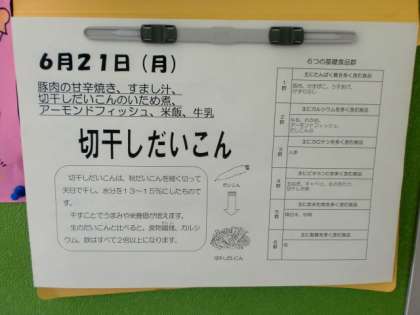 6月21日（月）
豚肉の甘辛焼き、すまし汁、
切干しだいこんのいため煮、
アーモンドフィッシュ、米飯、牛乳
切干しだいこん
切干しだいこんは、秋だいこんを細く切って
天日で干し、水分を13〜15％にしたもので
す。
干すことでうまみや栄養価が増えます。
生のだいこんと比べると、食物繊維、カルシ
ウム、鉄はすべて2倍以上になります。
だいこん
切干しだいこん
6つの基礎食品群
1群
主にたんぱく質を多く含む食品
2群
主にカルシウムを多く含む食品
アーモンドフィッシュ、
3群
主にカロテンを多く含む食品
4群
主にビタミンCを多く含む食品
5群
主に炭水化物を多く含む食品
6群
主に脂質を多く含む食品
油